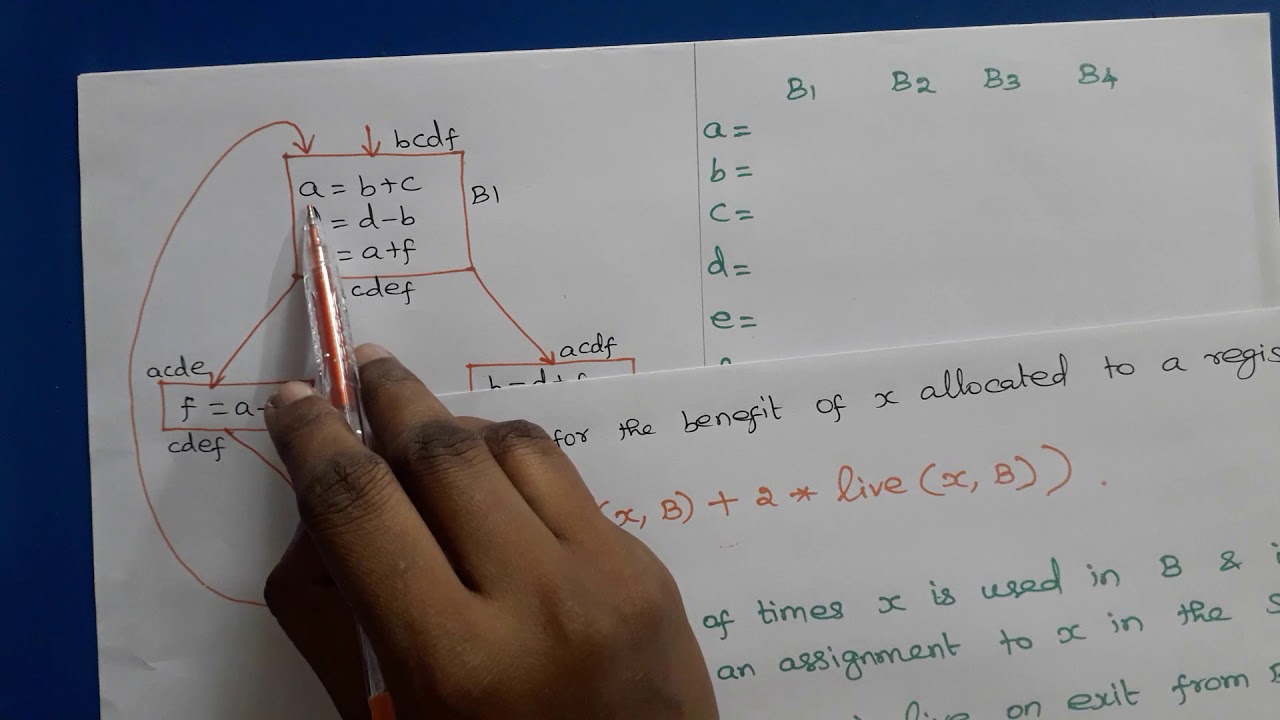 bcdf
a = b+c
= d-b
= a+f
B1
cdef
acde
f = a-
cdef
acdf
B1 B2 B3 B4
a =
b =
c =
d =
e =
for the benefit of x allocated to a
(x, B) + 2 * live (x, B)) .
of times x is used in B &
an assignment to x in the
live on exit from